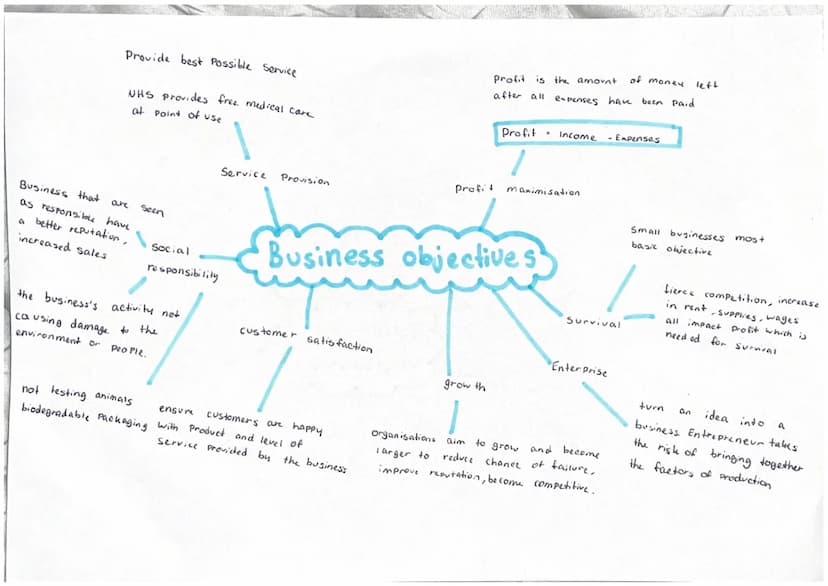 Business objectives
Service Provision
Provide best possible service
NHS provides free medical care
at point of use
Profit maximisation
Profit is the amount of money left
after all expenses have been paid
Profit = Income - Expenses
Survival
Small businesses most
basic objective
fierce competition, increase
in rent, supplies, wages
all impact profit which is
needed for survival
Enterprise
turn an idea into a
business Entrepreneur takes
the risk of bringing together
the factors of production
growth
Organisations aim to grow and become
larger to reduce chance of failure,
improve reputation, become competitive.
customer satisfaction
ensure customers are happy
with product and level of
service provided by the business
social
responsibility
Business that are seen
as responsible have
a better reputation,
increased sales
the business's activity not
causing damage to the
environment or people.
not testing animals
biodegradable packaging